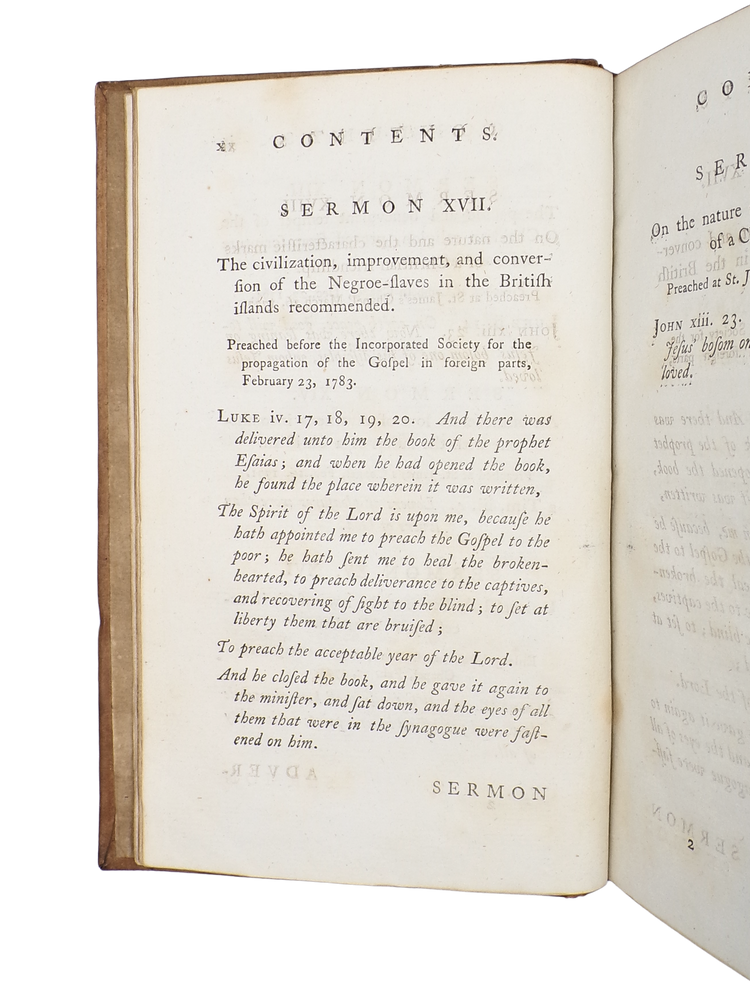 x CONTENTS.
SERMON XVII.
The civilization, improvement, and conver-
ſion of the Negroe-ſlaves in the Britiſh
iſlands recommended.
Preached before the Incorporated Society for the
propagation of the Goſpel in foreign parts,
February 23, 1783.
LUKE iv. 17, 18, 19, 20. And there was
delivered unto him the book of the prophet
Eſaias; and when he had opened the book,
he found the place wherein it was written,
The Spirit of the Lord is upon me, becauſe he
hath appointed me to preach the Goſpel to the
poor; he hath ſent me to heal the broken-
hearted, to preach deliverance to the captives,
and recovering of ſight to the blind; to ſet at
liberty them that are bruiſed;
To preach the acceptable year of the Lord.
And he cloſed the book, and he gave it again to
the miniſter, and ſat down, and the eyes of all
them that were in the ſynagogue were faſt-
ened on him.
SERMON
CO
SER
On the nature
of a C
Preached at St. J
JOHN xiii. 23.
Jeſus' boſom on
loved.
2